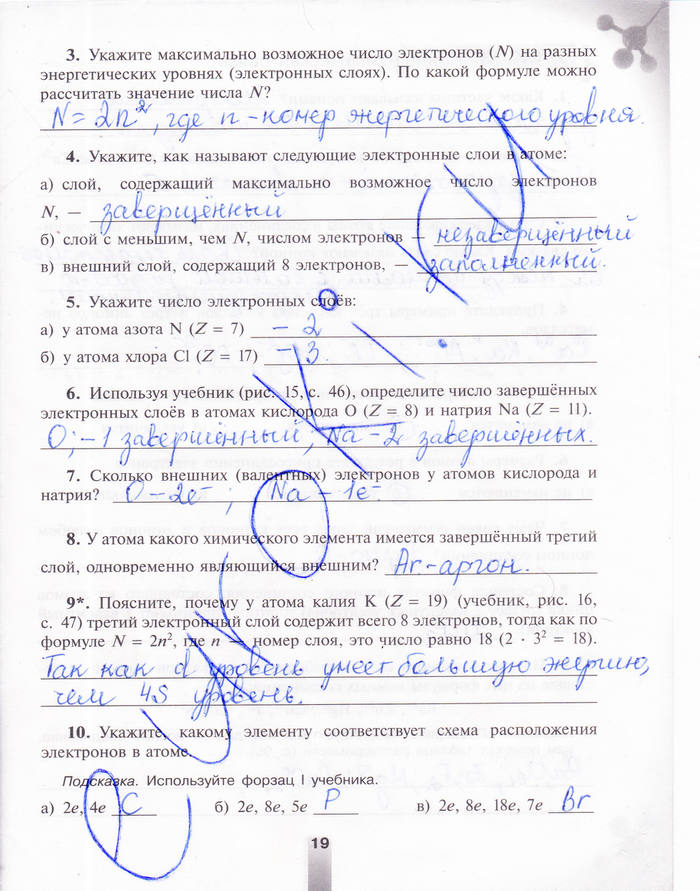 3. Укажите максимально возможное число электронов (N) на разных
энергетических уровнях (электронных слоях). По какой формуле можно
рассчитать значение числа N?
N = 2n², где n - номер энергетического уровня.
4. Укажите, как называют следующие электронные слои в атоме:
а) слой, содержащий максимально возможное число электронов
N, — завершённый
б) слой с меньшим, чем N, числом электронов — незавершённый
в) внешний слой, содержащий 8 электронов, — заполненный.
5. Укажите число электронных слоёв:
а) у атома азота N (Z = 7) - 2
б) у атома хлора Cl (Z = 17) - 3.
6. Используя учебник (рис. 15, с. 46), определите число завершённых
электронных слоёв в атомах кислорода O (Z = 8) и натрия Na (Z = 11).
O; - 1 завершённый, Na - 2 завершённых.
7. Сколько внешних (валентных) электронов у атомов кислорода и
натрия? O - 2e⁻; Na - 1e⁻
8. У атома какого химического элемента имеется завершённый третий
слой, одновременно являющийся внешним? Ar - аргон.
9*. Поясните, почему у атома калия K (Z = 19) (учебник, рис. 16,
с. 47) третий электронный слой содержит всего 8 электронов, тогда как по
формуле N = 2n², где n — номер слоя, это число равно 18 (2 · 3² = 18).
Так как d уровень умеет большую энергию,
чем 4S уровень.
10. Укажите, какому элементу соответствует схема расположения
электронов в атоме.
Подсказка. Используйте форзац I учебника.
а) 2e, 4e C б) 2e, 8e, 5e P в) 2e, 8e, 18e, 7e Br
19